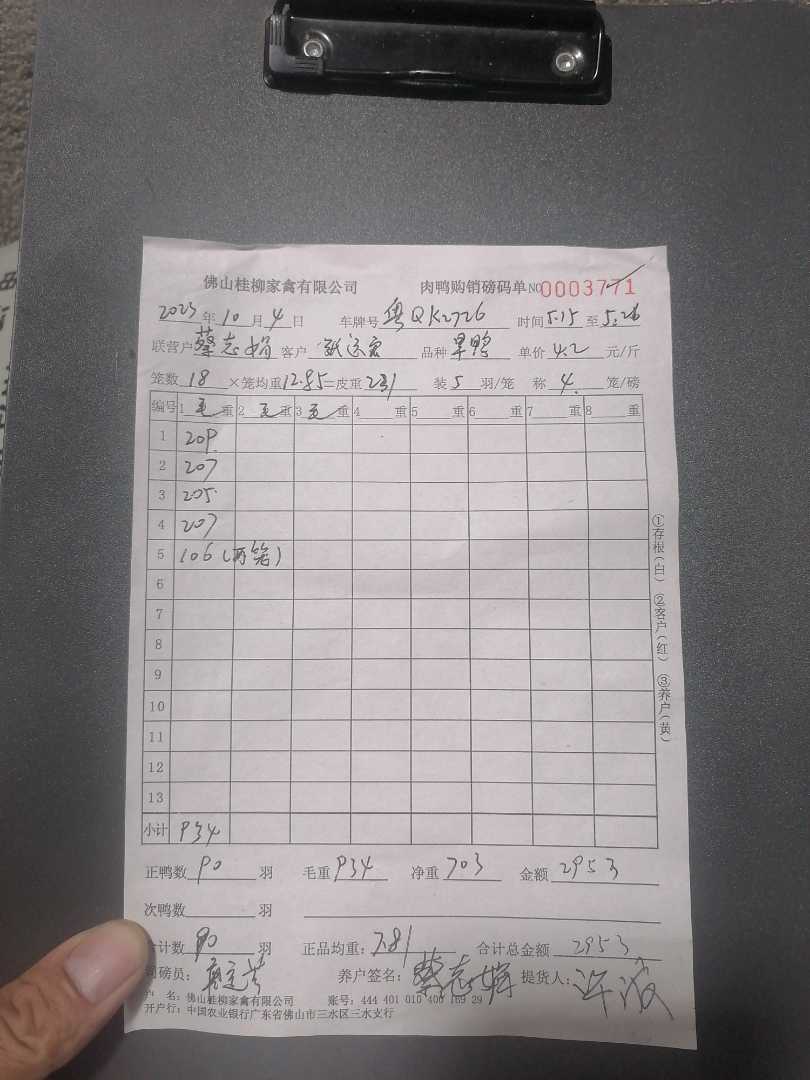 佛山桂柳家禽有限公司 肉鸭购销磅码单 NO 0003771
2023年10月4日 车牌号 粤QK2726 时间 5.15 至 5.26
联营户 蔡志娟 客户 品种 旱鸭 单价 4.2 元/斤
笼数 18 ×笼均重 12.85 =皮重 231 装 5 羽/笼 称 4 笼/磅
编号 1 毛重 2 毛重 3 毛重 4 重 5 重 6 重 7 重 8 重
1 209
2 207
3 205
4 207
5 106 (两笼)
6
7
8
9
10
11
12
13
小计 934
①存根(白) ②客户(红) ③养户(黄)
正鸭数 90 羽 毛重 934 净重 703 金额 2953
次鸭数 羽
合计数 90 羽 正品均重: 7.81 合计总金额 2953
司磅员: 养户签名: 蔡志娟 提货人: 许波
户 名: 佛山桂柳家禽有限公司 账号: 444 401 010 400 169 29
开户行: 中国农业银行广东省佛山市三水区三水支行